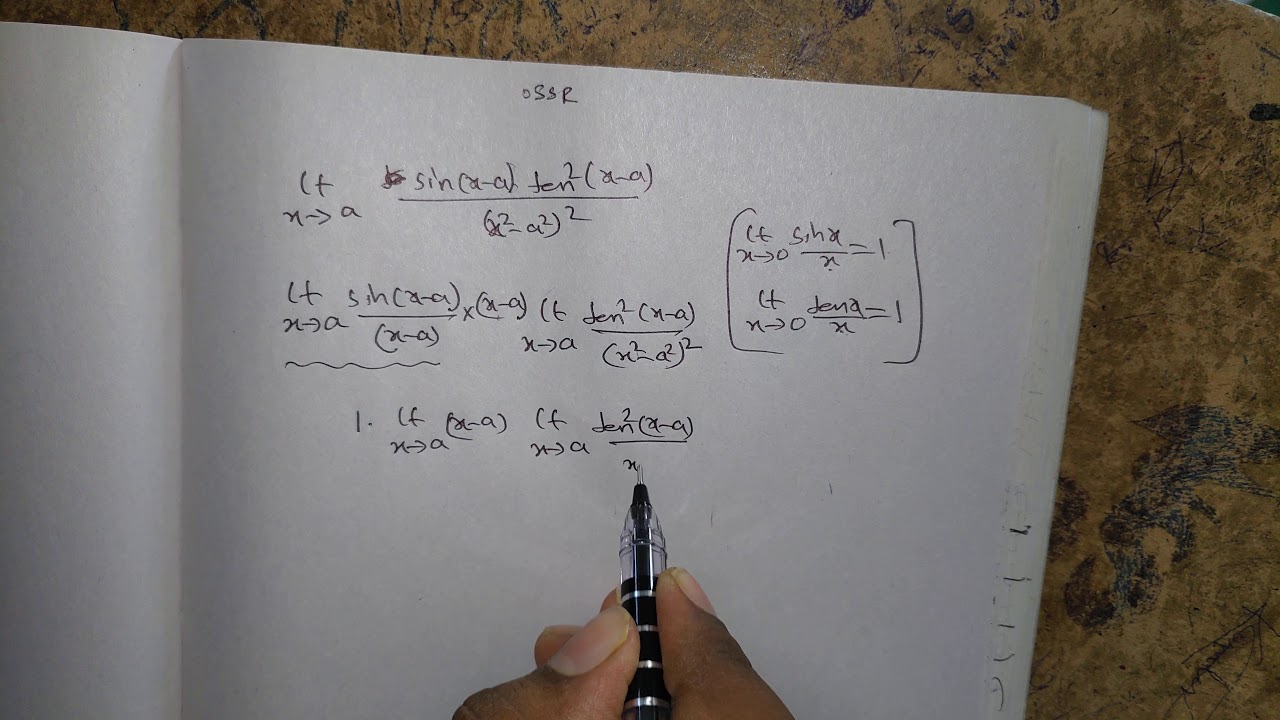 OSSR
lt x→a sin(x-a) tan²(x-a) / (x²-a²)²
lt x→a sin(x-a) / (x-a) × (x-a) lt x→a tan²(x-a) / (x²-a²)²
[lt x→0 sinx / x = 1
lt x→0 tanx / x = 1]
1. lt x→a (x-a) lt x→a tan²(x-a) / x